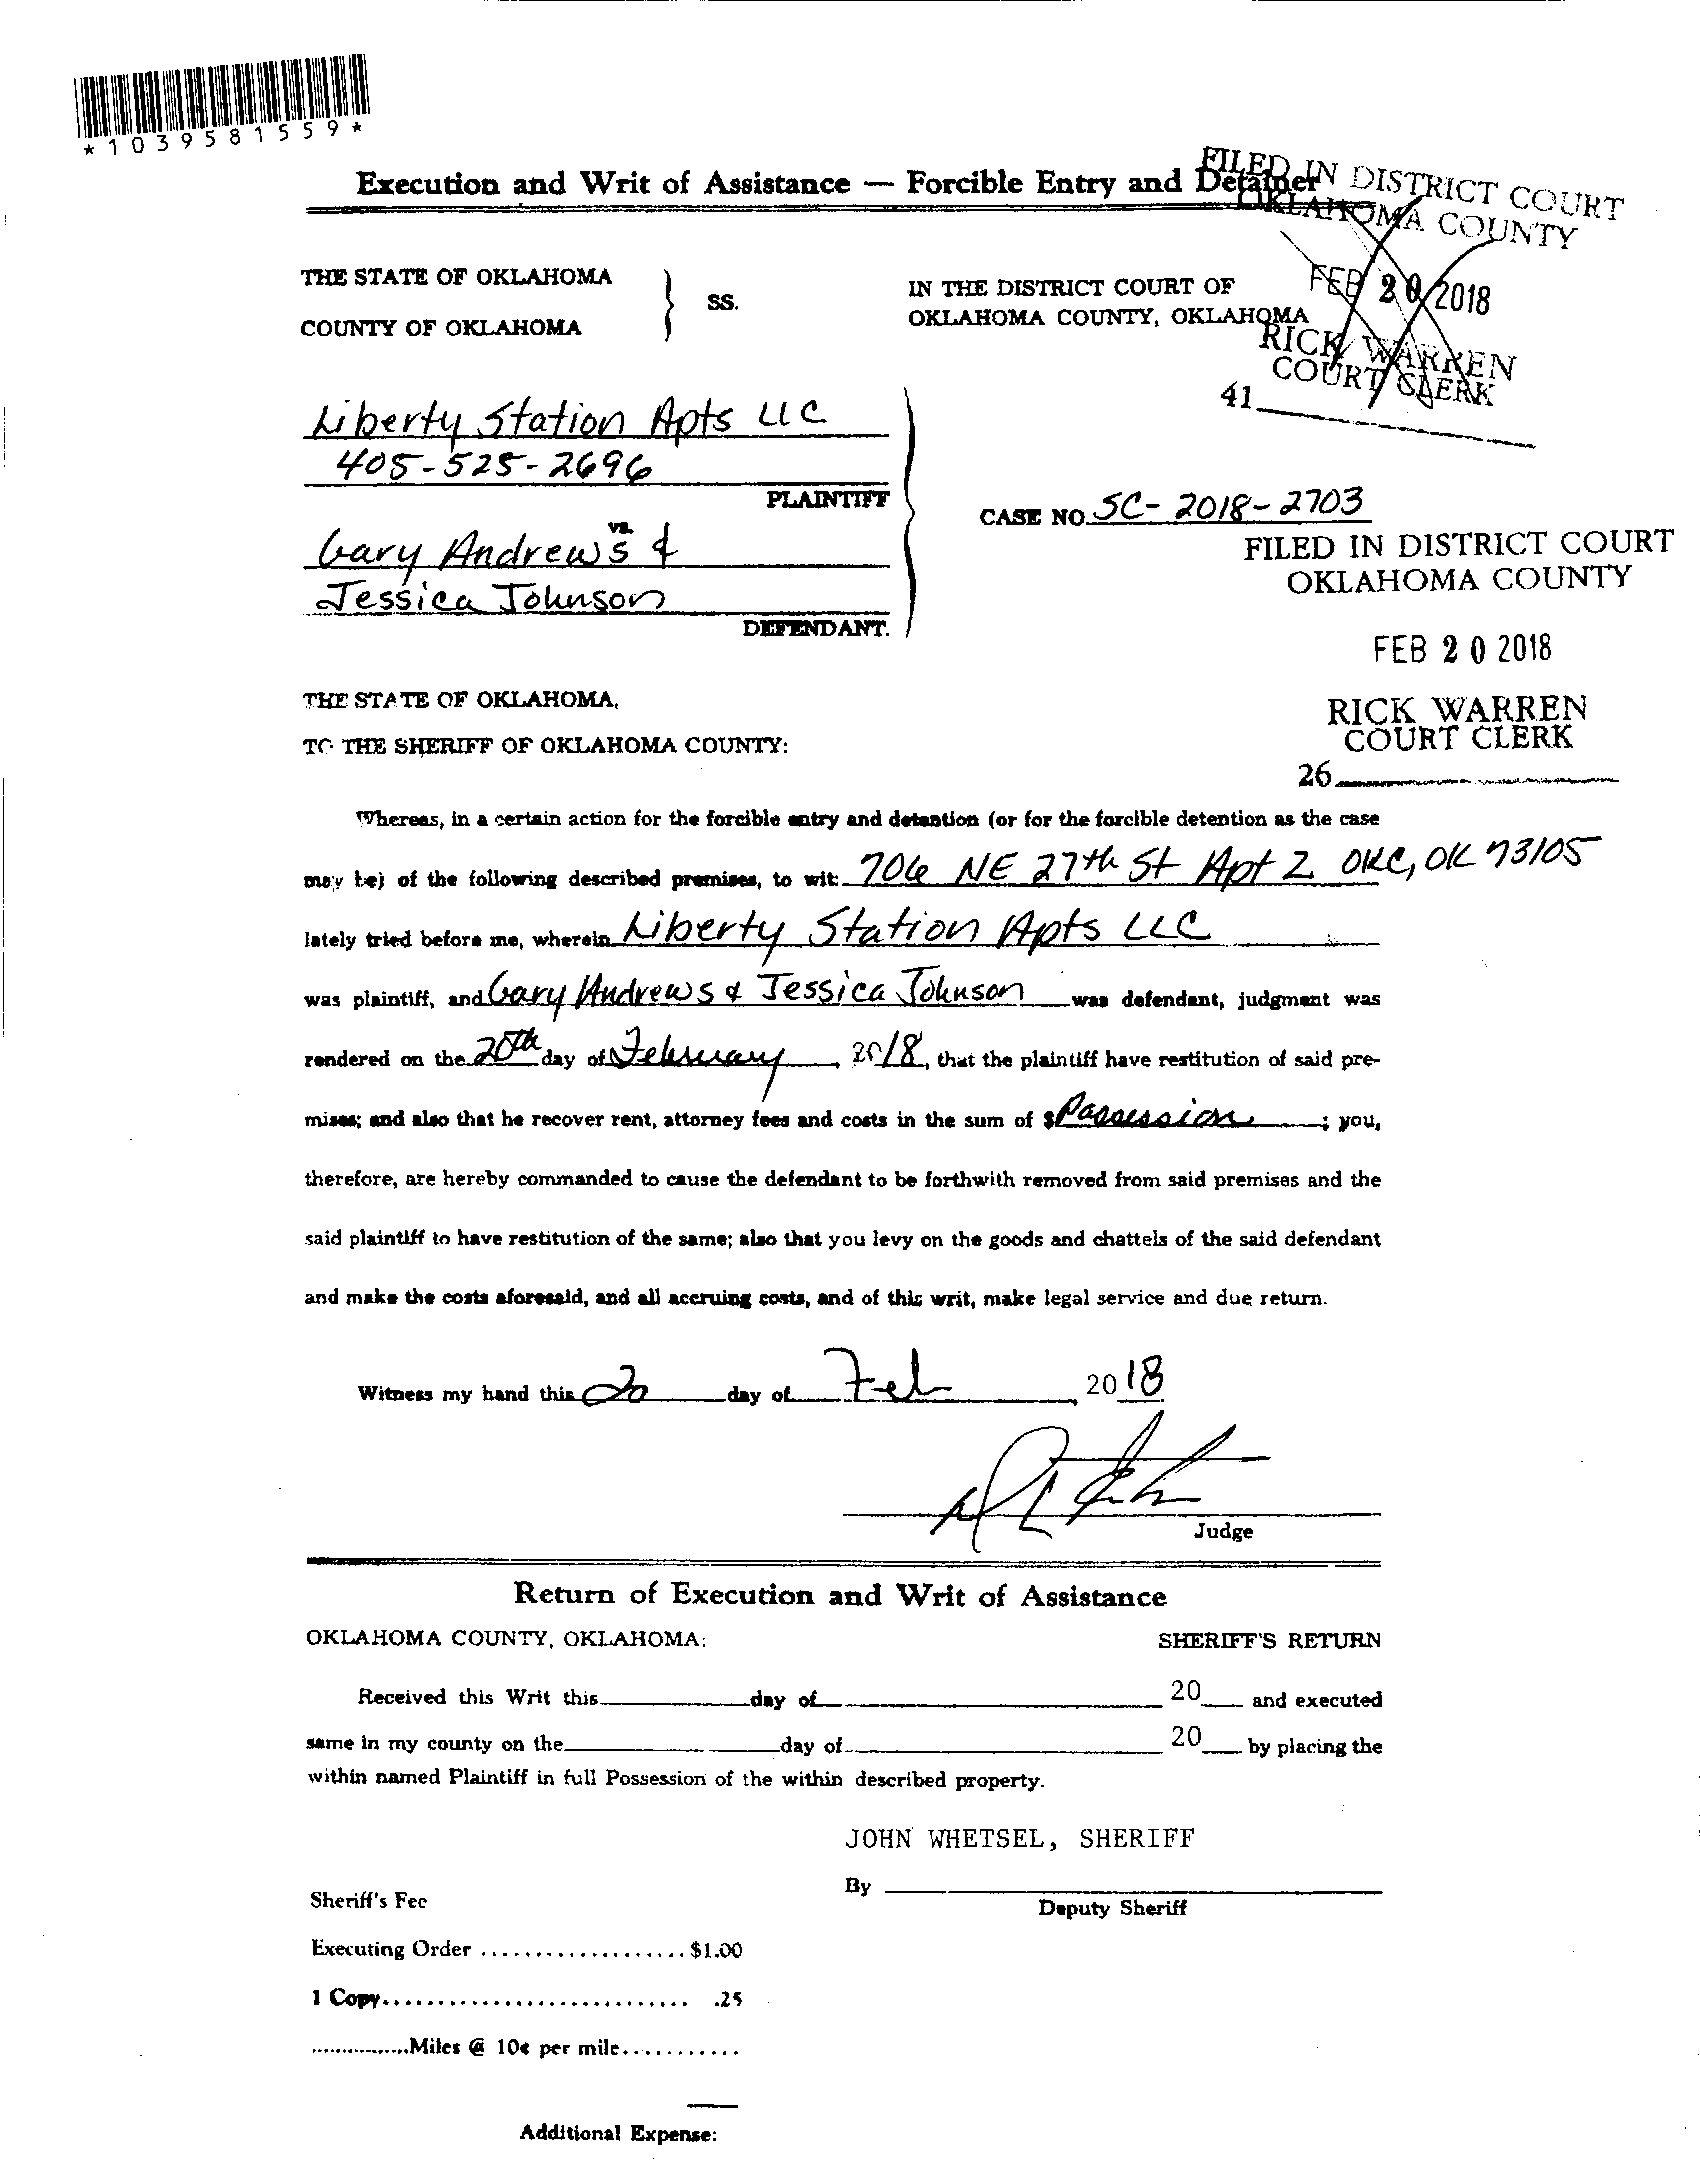 *1039581559*
Execution and Writ of Assistance — Forcible Entry and Detainer
FILED IN DISTRICT COURT
OKLAHOMA COUNTY
FEB 20 2018
RICK WARREN
COURT CLERK
41
THE STATE OF OKLAHOMA
COUNTY OF OKLAHOMA
SS.
IN THE DISTRICT COURT OF
OKLAHOMA COUNTY, OKLAHOMA
Liberty Station Apts LLC
405-525-2696
PLAINTIFF
vs.
Gary Andrews &
Jessica Johnson
DEFENDANT.
CASE NO. SC-2018-2703
FILED IN DISTRICT COURT
OKLAHOMA COUNTY
FEB 20 2018
RICK WARREN
COURT CLERK
26
THE STATE OF OKLAHOMA,
TO THE SHERIFF OF OKLAHOMA COUNTY:
Whereas, in a certain action for the forcible entry and detention (or for the forcible detention as the case
may be) of the following described premises, to wit: 706 NE 27th St Apt 2 OKC, OK 73105
lately tried before me, wherein Liberty Station Apts LLC
was plaintiff, and Gary Andrews & Jessica Johnson was defendant, judgment was
rendered on the 20th day of February, 2018, that the plaintiff have restitution of said pre-
mises; and also that he recover rent, attorney fees and costs in the sum of $ Possession; you,
therefore, are hereby commanded to cause the defendant to be forthwith removed from said premises and the
said plaintiff to have restitution of the same; also that you levy on the goods and chattels of the said defendant
and make the costs aforesaid, and all accruing costs, and of this writ, make legal service and due return.
Witness my hand this 20 day of Feb, 2018
Judge
Return of Execution and Writ of Assistance
OKLAHOMA COUNTY, OKLAHOMA:
SHERIFF'S RETURN
Received this Writ this day of 20 and executed
same in my county on the day of 20 by placing the
within named Plaintiff in full Possession of the within described property.
JOHN WHETSEL, SHERIFF
By
Deputy Sheriff
Sheriff's Fee
Executing Order ................... $1.00
1 Copy............................ .25
................Miles @ 10¢ per mile...........
Additional Expense: